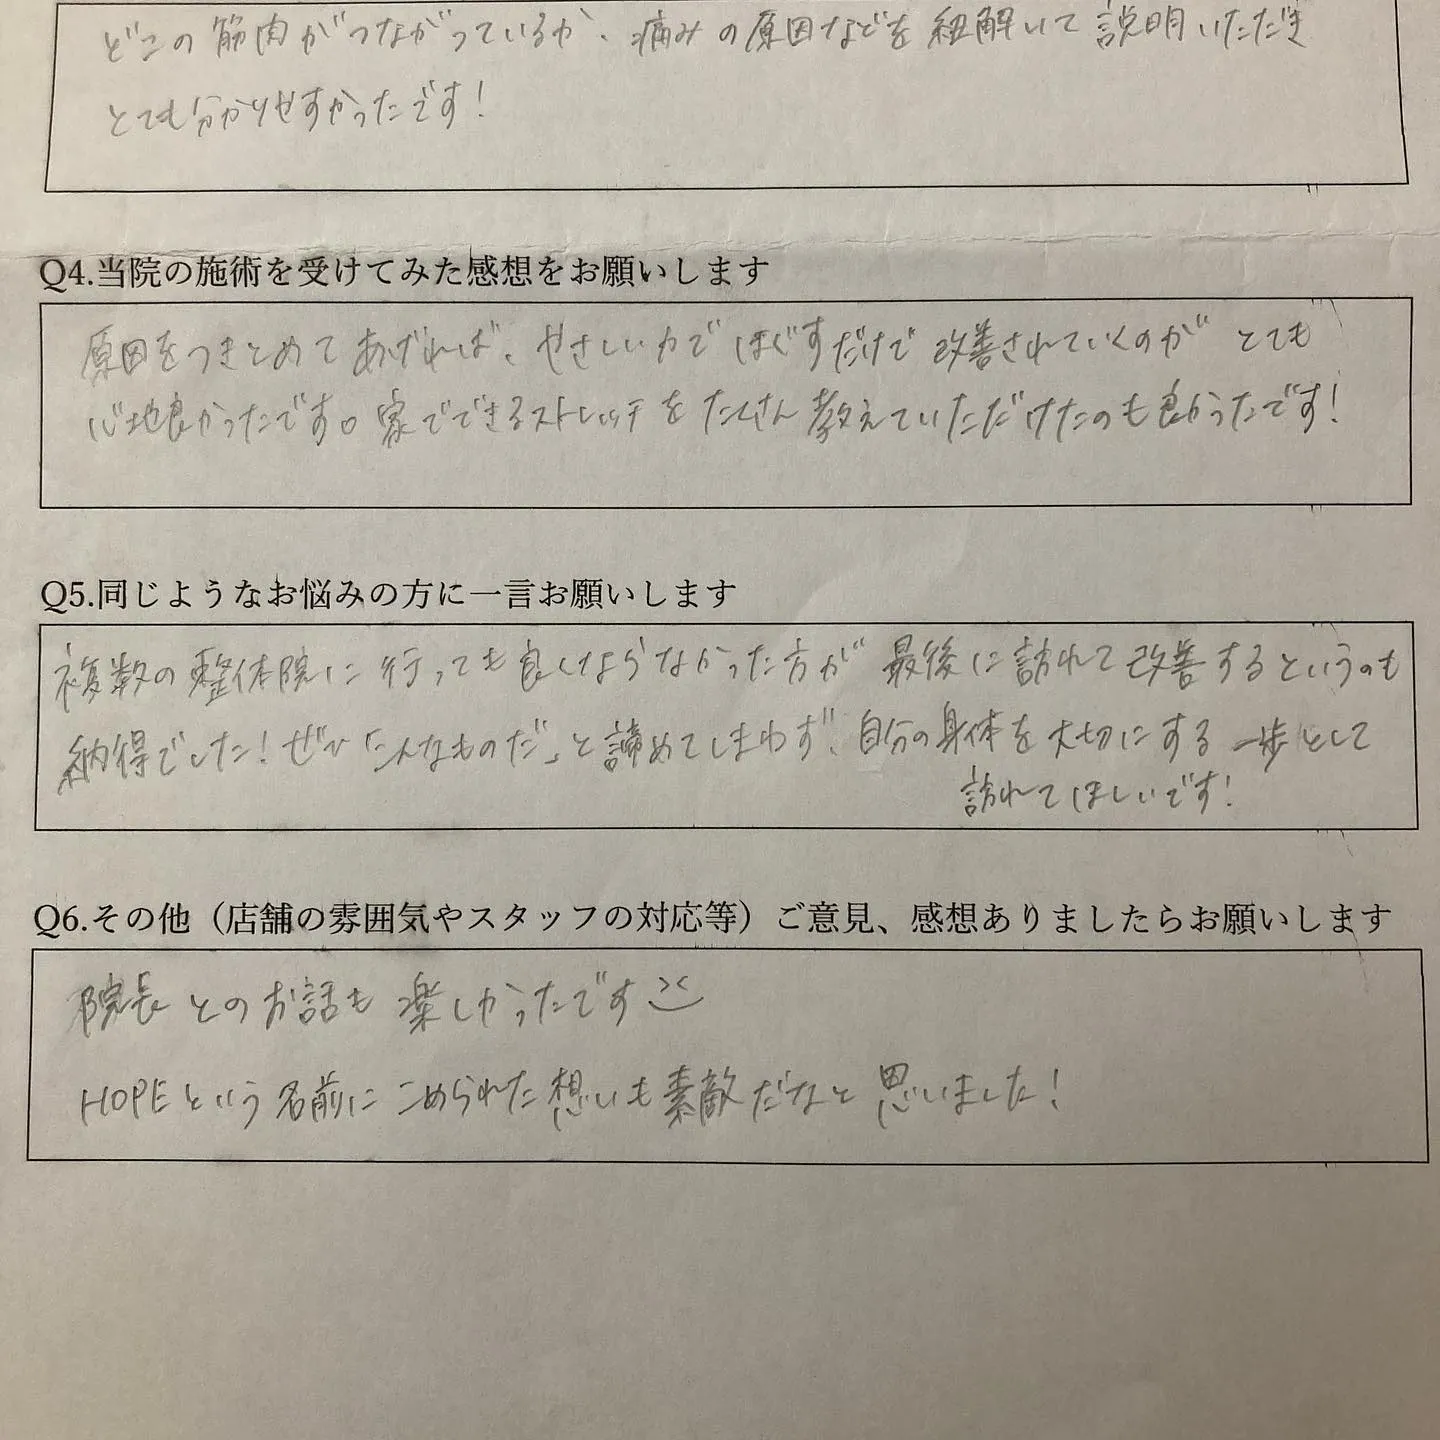 どこの筋肉がつながっているか、痛みの原因などを紐解いて説明いただき
とても分かりやすかったです!
Q4.当院の施術を受けてみた感想をお願いします
原因をつきとめてあげれば、やさしい力でほぐすだけで改善されていくのがとても
心地良かったです。家でできるストレッチをたくさん教えていただけたのも良かったです!
Q5.同じようなお悩みの方に一言お願いします
複数の整体院に行っても良くならなかった方が最後に訪れて改善するというのも
納得でした!ぜひ「こんなものだ」と諦めてしまわず、自分の身体を大切にする一歩として
訪れてほしいです!
Q6.その他（店舗の雰囲気やスタッフの対応等）ご意見、感想ありましたらお願いします
院長とのお話も楽しかったです
HOPEという名前にこめられた想いも素敵だなと思いました!